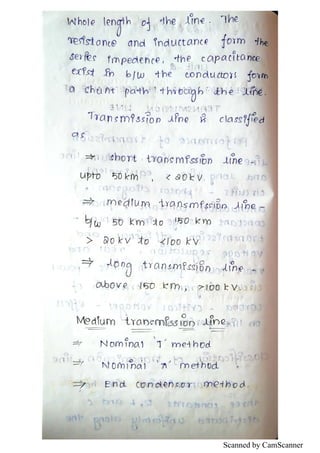 Whole length of the line. The
resistance and inductance form the
series impedence, the capacitance
exist in b/w the conductors form
a shunt path through the line.
Transmission line is classified
as
⇒ short transmission line
upto 50km, < 20kV.
⇒ medium transmission line -
b/w 50 km to 150 km
> 20kV to <100 kV
⇒ long transmission line -
above 150 km, >100 kV.
Medium transmission line
⇒ Nominal T method
⇒ Nominal π method
⇒ End condensor method.
Scanned by CamScanner